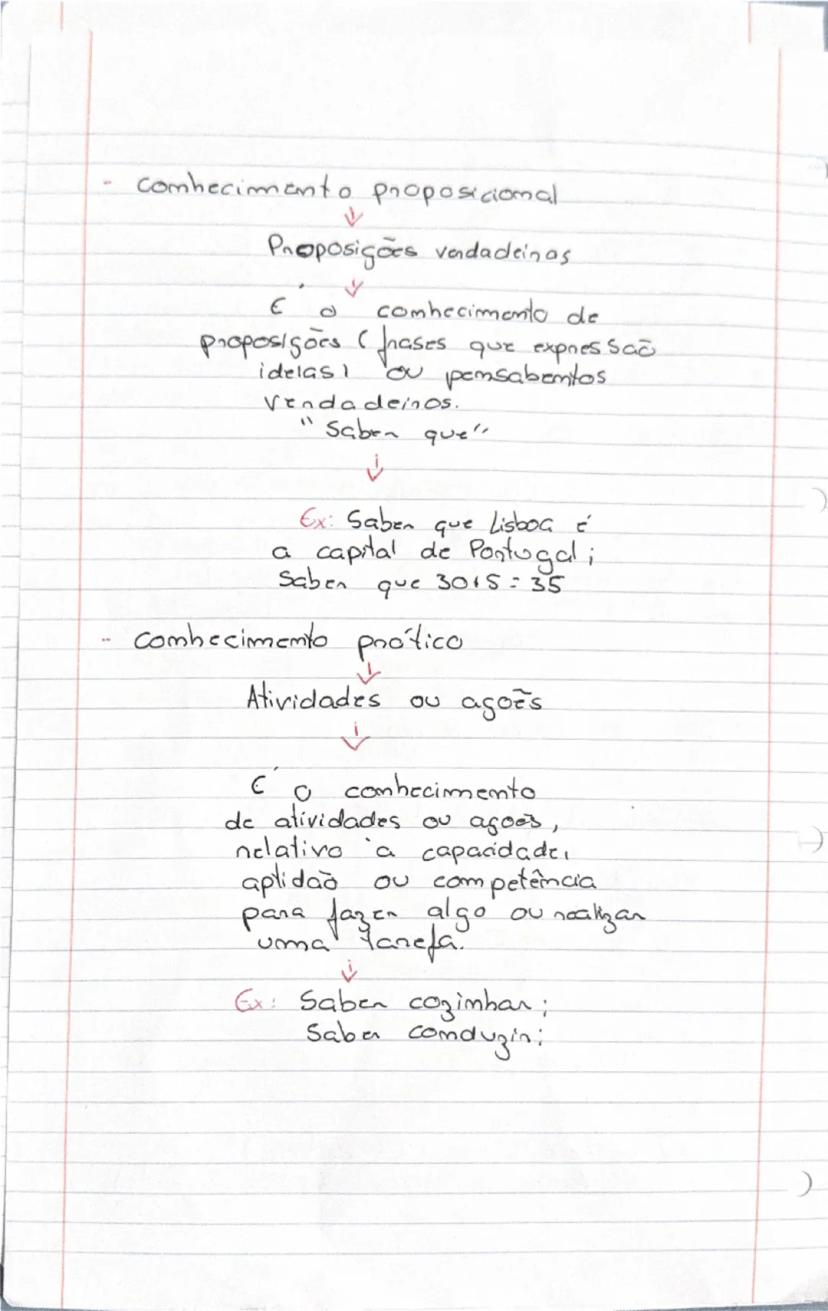 - conhecimento proposicional
Proposições verdadeiras
É o conhecimento de
proposições (frases que expressão
ideias) ou pensabentos
verdadeiros.
"Saber que"
Ex: Saber que Lisboa é
a capital de Portugal;
Saber que 30+5=35
- conhecimento prático
Atividades ou agoẽs
É o conhecimento
de atividades ou agoẽs,
relativo à capacidade,
aptidão ou competência
para fazer algo ou realizar
uma tarefa.
Ex: Saber cozinhar;
Saber conduzir;